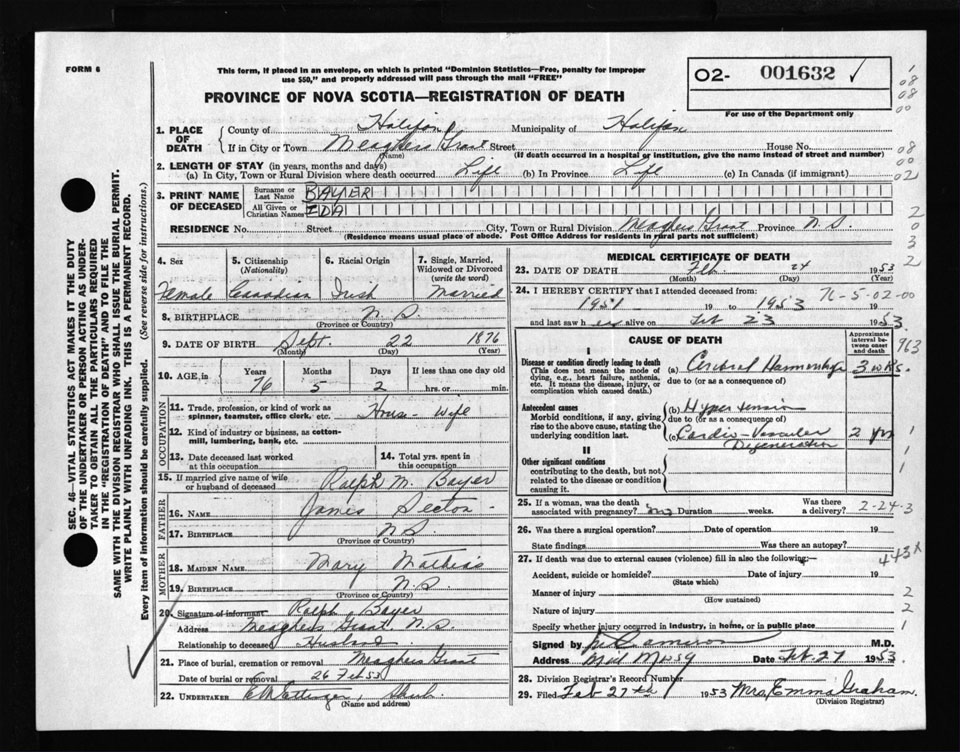 FORM 6
This form, if placed in an envelope, on which is printed "Dominion Statistics—Free, penalty for improper
use $50," and properly addressed will pass through the mail "FREE"
PROVINCE OF NOVA SCOTIA—REGISTRATION OF DEATH
O2- 001632 ✓
For use of the Department only
1. PLACE OF DEATH County of Halifax Municipality of Halifax
If in City or Town Meaghers Grant Street House No.
(Name) (If death occurred in a hospital or institution, give the name instead of street and number)
2. LENGTH OF STAY (in years, months and days)
(a) In City, Town or Rural Division where death occurred Life (b) In Province Life (c) In Canada (if immigrant)
3. PRINT NAME OF DECEASED Surname or Last Name BAYER
All Given or Christian Names IDA
RESIDENCE No. Street City, Town or Rural Division Meaghers Grant Province N.S.
(Residence means usual place of abode. Post Office Address for residents in rural parts not sufficient)
4. Sex 5. Citizenship (Nationality) 6. Racial Origin 7. Single, Married, Widowed or Divorced (write the word)
Female Canadian Irish Married
8. BIRTHPLACE N.S.
(Province or Country)
9. DATE OF BIRTH Sept. 22 1876
(Month) (Day) (Year)
10. AGE in Years Months Days If less than one day old
76 5 2 hrs. or min.
OCCUPATION
11. Trade, profession or kind of work as spinner, teamster, office clerk, etc. House-wife
12. Kind of industry or business, as cotton-mill, lumbering, bank, etc.
13. Date deceased last worked at this occupation 14. Total yrs. spent in this occupation
15. If married give name of wife or husband of deceased Ralph M. Bayer
FATHER
16. NAME James Sector
17. BIRTHPLACE N.S.
(Province or Country)
MOTHER
18. MAIDEN NAME Mary Mathias
19. BIRTHPLACE N.S.
(Province or Country)
20. Signature of informant Ralph Bayer
Address Meaghers Grant N.S.
Relationship to deceased Husband
21. Place of burial, cremation or removal Meaghers Grant
Date of burial or removal 26 Feb 53
22. UNDERTAKER
(Name and address)
MEDICAL CERTIFICATE OF DEATH
23. DATE OF DEATH Feb. 24 1953
(Month) (Day) (Year)
24. I HEREBY CERTIFY that I attended deceased from: 76-5-02-00
1951 19 to 1953 19
and last saw her alive on Feb 23 1953
CAUSE OF DEATH
Approximate interval between onset and death
963
I
Disease or condition directly leading to death
(This does not mean the mode of dying, e.g., heart failure, asthenia, etc. It means the disease, injury, or complication which caused death.)
(a) Cerebral Haemorrhage 3 wks.
due to (or as a consequence of)
Antecedent causes
Morbid conditions, if any, giving rise to the above cause, stating the underlying condition last.
(b) Hypertension
due to (or as a consequence of)
(c) Cardio-Vascular Degeneration 2 yrs
II
Other significant conditions
contributing to the death, but not related to the disease or condition causing it.
25. If a woman, was the death associated with pregnancy? no Duration weeks. Was there a delivery? 2-24-3
26. Was there a surgical operation? Date of operation 19
State findings Was there an autopsy?
27. If death was due to external causes (violence) fill in also the following:— 443X
Accident, suicide or homicide? Date of injury 19
(State which)
Manner of injury 2
(How sustained)
Nature of injury 2
Specify whether injury occurred in industry, in home, or in public place 1
Signed by Cameron M.D.
Address Mid Musq Date Feb. 27 1953.
28. Division Registrar's Record Number
29. Filed Feb 27th 1953 Mrs. Emma Graham.
(Division Registrar)
SEC. 46—VITAL STATISTICS ACT MAKES IT THE DUTY
OF THE UNDERTAKER OR PERSON ACTING AS UNDER-
TAKER TO OBTAIN ALL THE PARTICULARS REQUIRED
IN THE "REGISTRATION OF DEATH" AND TO FILE THE
SAME WITH THE DIVISION REGISTRAR WHO SHALL ISSUE THE BURIAL PERMIT.
WRITE PLAINLY WITH UNFADING INK. THIS IS A PERMANENT RECORD.
Every item of information should be carefully supplied. (See reverse side for instructions.)